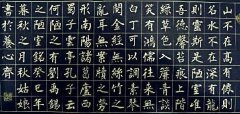 山不在高有仙則
名水不在深有龍
則靈斯是陋室惟
吾德馨苔痕上階
綠草色入簾青談
笑有鴻儒往來無
白丁可以調素琴
閱金經無絲竹之
亂耳無案牘之勞
形南陽諸葛廬西
蜀子雲亭孔子云
何陋之有
陋室銘癸巳年
書於養心齋